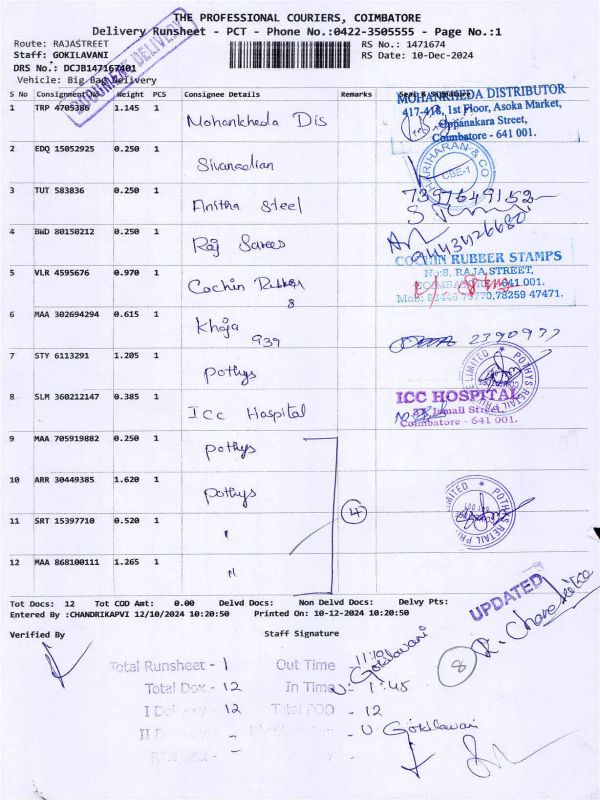 THE PROFESSIONAL COURIERS, COIMBATORE
Delivery Runsheet - PCT - Phone No.:0422-3505555 - Page No.:1
Route: RAJASTREET
RS No.: 1471674
Staff: GOKILAVANI
RS Date: 10-Dec-2024
DRS No.: DCJB147167401
Vehicle: Big Bag Delivery
DOCUMENT DELIVERY
S No Consignment No Weight PCS Consignee Details Remarks Seal & Signature
1 TRP 4705386 1.145 1 Mohankheda Dis
MOHANKHEDA DISTRIBUTOR
417-418, 1st Floor, Asoka Market,
Uppanakara Street,
Coimbatore - 641 001.
2 EDQ 15052925 0.250 1 Sivanadian
HARIHARAN & CO
CBE-1
3 TUT 583836 0.250 1 Anitha Steel
7397649152
4 BWD 80150212 0.250 1 Raj Sarees
9443426680
5 VLR 4595676 0.970 1 Cochin Rubber
8
COCHIN RUBBER STAMPS
No:8, RAJA STREET,
COIMBATORE-641 001.
Mob: 79770,78259 47471.
6 MAA 302694294 0.615 1 Khoja
939
2390977
7 STY 6113291 1.205 1 Pothys
POTHYS RETAIL PRIVATE LIMITED
8 SLM 360212147 0.385 1 ICC Hospital
ICC HOSPITAL
Ismail Street,
Coimbatore - 641 001.
9 MAA 705919882 0.250 1 Pothys
10 ARR 30449385 1.620 1 Pothys
POTHYS RETAIL PRIVATE LIMITED
11 SRT 15397710 0.520 1 "
4
12 MAA 868100111 1.265 1 "
Tot Docs: 12 Tot COD Amt: 0.00 Delvd Docs: Non Delvd Docs: Delvy Pts:
Entered By :CHANDRIKAPVI 12/10/2024 10:20:50 Printed On: 10-12-2024 10:20:50
UPDATED
Verified By Staff Signature
8
Total Runsheet - 1 Out Time - 11:10
Gokilavani
Total Dox - 12 In Time - 1:45
I Delivery - 12 Total POD - 12
II Delivery - - U. Gokilavani